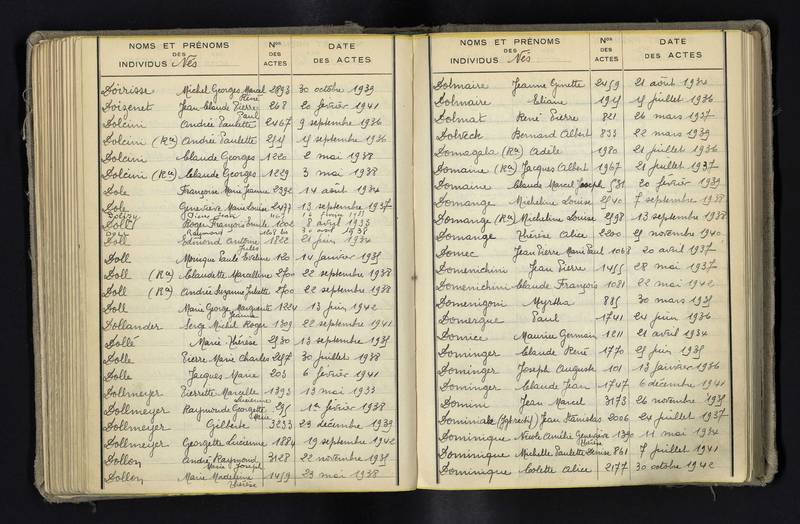 NOMS ET PRÉNOMS DES INDIVIDUS Nés Nos DES ACTES DATE DES ACTES
Doirisse Michel Georges Marcel René 2893 30 octobre 1939
Doizenet Jean Claude Pierre Paul 268 20 février 1941
Dolcini André Paulette 2467 9 septembre 1936
Dolcini (Ron) André Paulette septembre 1936
Dolcini Claude Georges 1220 2 mai 1938
Dolcini (Ron) Claude Georges 1229 3 mai 1938
Dole Françoise Marie Jeanne 2392 14 août 1934
Dole Geneviève Marie Louise 2497 13 septembre 1937
Doll Roger François Emile 1002 8 avril 1933
Doll Edmond Antoine Jules 1822 21 juin 1934
Doll Monique Paule Eveline 120 14 janvier
Doll (Ron) Claudette Marcelline 2700 22 septembre 1938
Doll (Ron) Andrée Suzanne Juliette 2700 22 septembre 1938
Doll Marie George Marguerite Jeanne 1224 13 juin 1942
Dollander Serge Michel Roger 1309 22 septembre 1941
Dollé Marie Thérèse 13 septembre
Dolle Pierre Marie Charles 30 juillet 1938
Dolle Jacques Marie 203 6 février 1941
Dollmeyer Pierrette Marcelle Lucienne 1393 13 mai 1933
Dollmeyer Raymonde Georgette Marie 1er février 1938
Dollmeyer Gilberte 3233 29 décembre 1939
Dollmeyer Georgette Lucienne 1884 19 septembre 1942
Dollon André Raymond Marie Joseph 3128 22 novembre
Dollon Marie Madeleine Thérèse 1459 23 mai 1938
NOMS ET PRÉNOMS DES INDIVIDUS Nés Nos DES ACTES DATE DES ACTES
Dolmaire Jeanne Ginette 2459 21 août 1934
Dolmaire Eliane juillet 1936
Dolmat René Pierre 821 26 mars 1937
Dolveck Bernard Albert 833 22 mars 1939
Domagala (Ron) Adèle 1980 21 juillet 1936
Domaine (Ron) Jacques Albert 1967 21 juillet 1937
Domaine Claude Marcel Joseph 20 février 1939
Domange Micheline Louise 7 septembre 1938
Domange (Ron) Micheline Louise 13 septembre 1938
Domange Thérèse Alice 2200 novembre 1940
Domec Jean Pierre Marie Paul 1068 20 avril 1937
Domenichini Jean Pierre 1455 28 mai 1937
Domenichini Claude François 1081 22 mai 1942
Domenigoni Myrtha 885 30 mars
Domergue Paul 1741 juin 1936
Domice Maurice Germain 1211 21 avril 1934
Dominger Claude René 1770 juin
Dominger Joseph Auguste 101 13 janvier 1936
Dominger Claude Jean 1747 6 décembre 1941
Domini Jean Marcel 3173 26 novembre
Jean Stanislas 2006 24 juillet 1937
Dominique Nicole Amélie Geneviève 1390 11 mai 1934
Dominique Michelle Paulette Denise 861 7 juillet 1941
Dominique Colette Alice 2177 30 octobre 1942